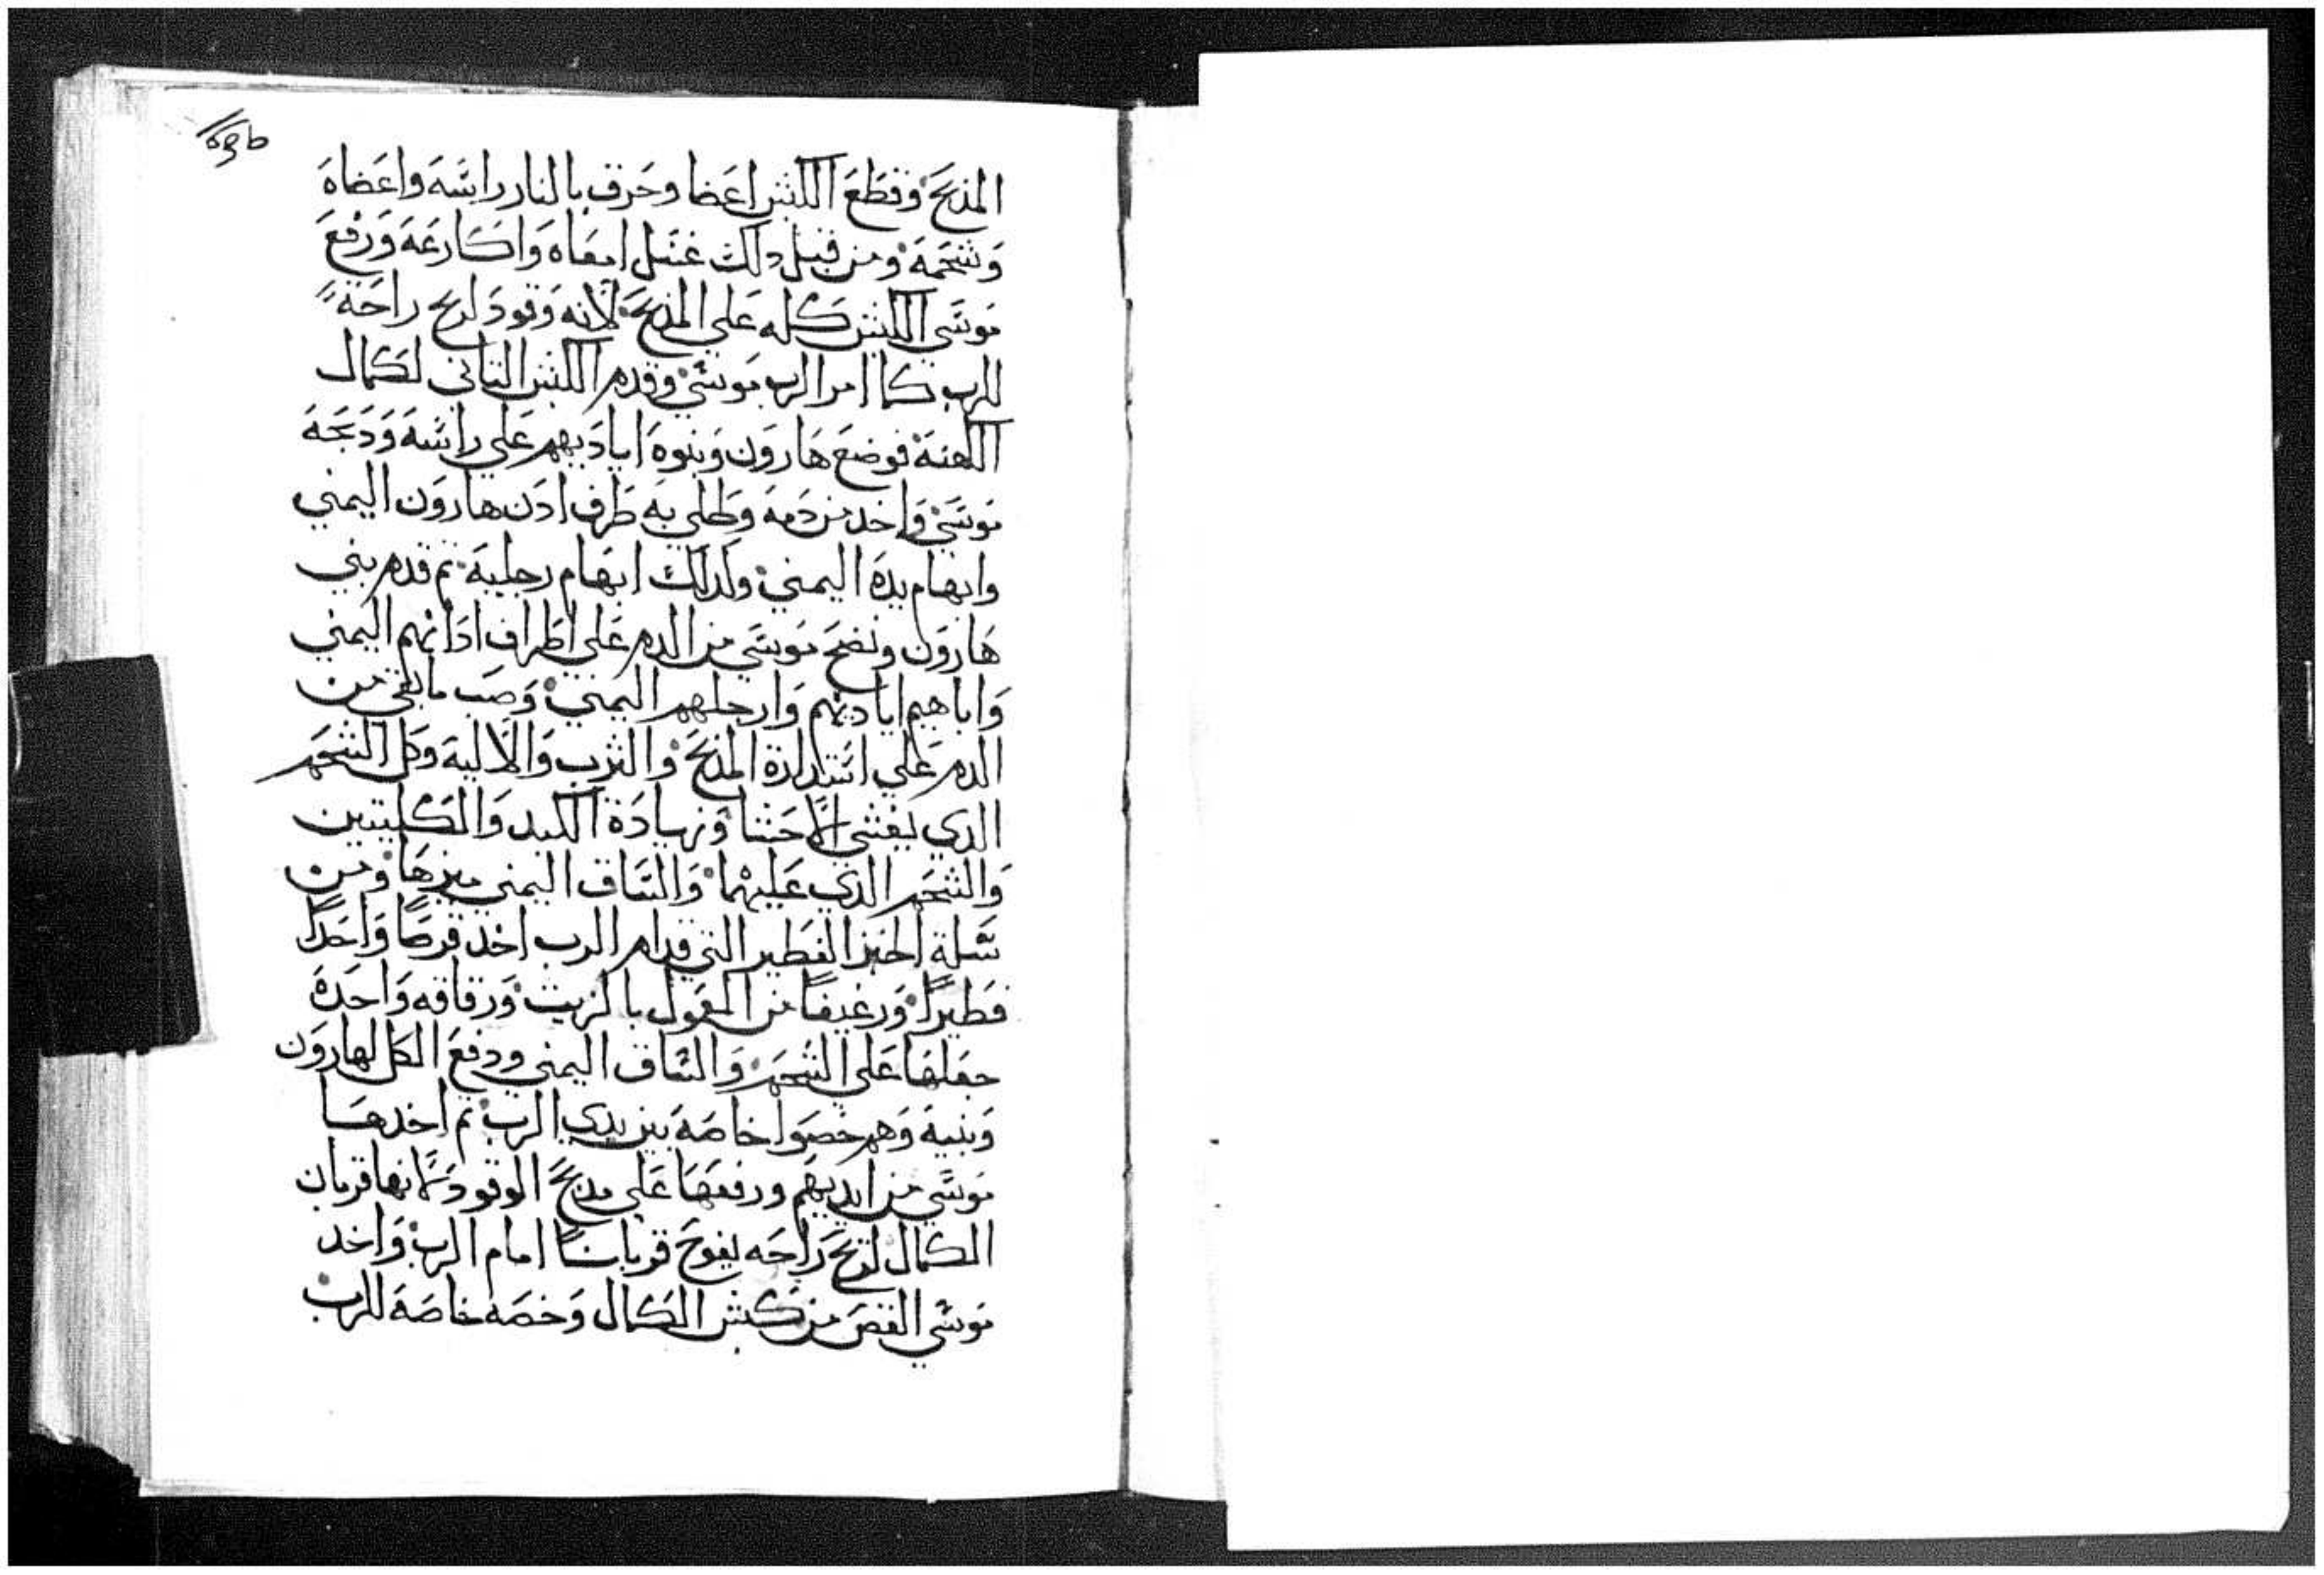 المذبح وقطع الكبش اعضا وحرق بالنار راسه واعضاه
وشحمه ومن قبل دلك غسل امعاه واكارعه ورفع
موسى الكبش كله علي المذبح لانه وقود لريح راحة
للرب كما امر الرب موسى وقدم الكبش التاني لكمال
الكهنة فوضع هارون وبنوه اياديهم علي راسه ودبحه
موسي واخد من دمه وطلي به طرف ادن هارون اليمني
وابهام يده اليمني وكدلك ابهام رجليه تم قدم بني
هارون ونضح موسي من الدم علي اطراف ادانهم اليمني
واباهيم اياديهم وارجلهم اليمني وصب ما بقي من
الدم علي استدارة المذبح والثرب والالية وكل الشحم
الدي يغشي الاحشا وزيادة الكبد والكليتين
والشحم الدي عليهما والساق اليمني ميزها ومن
سلة الخبز الفطير التي قدام الرب اخد قرصا واحدا
فطيرا ورغيفا من المعول بالزيت ورقاقه واحدة
جعلها علي الشحم والساق اليمني ودفع الكل لهارون
وبنيه وهم خصوا خاصة بين يدي الرب تم اخدها
موسي من ايديهم ورفعها علي مدبح الوقود لانها قربان
الكمال لريح راحه يفوح قربانا امام الرب واخد
موسي القص من كبش الكمال وخصه خاصة للرب